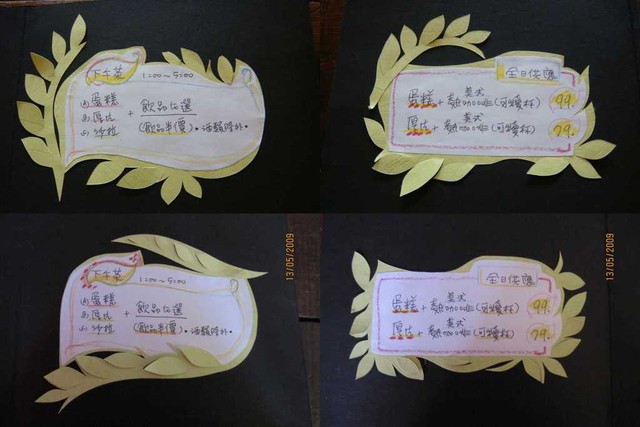 下午茶 1:00~5:00
蛋糕
厚片 + 飲品任選
沙拉 (飲品半價)。酒類除外。
全日供應
蛋糕 + 美式熱咖啡(可續杯) 99.
厚片 + 美式熱咖啡(可續杯) 79.
下午茶 1:00~5:00
蛋糕
厚片 + 飲品任選
沙拉 (飲品半價)。酒類除外。
13/05/2009
全日供應
蛋糕 + 美式熱咖啡(可續杯) 99.
厚片 + 美式熱咖啡(可續杯) 79.
13/05/2009